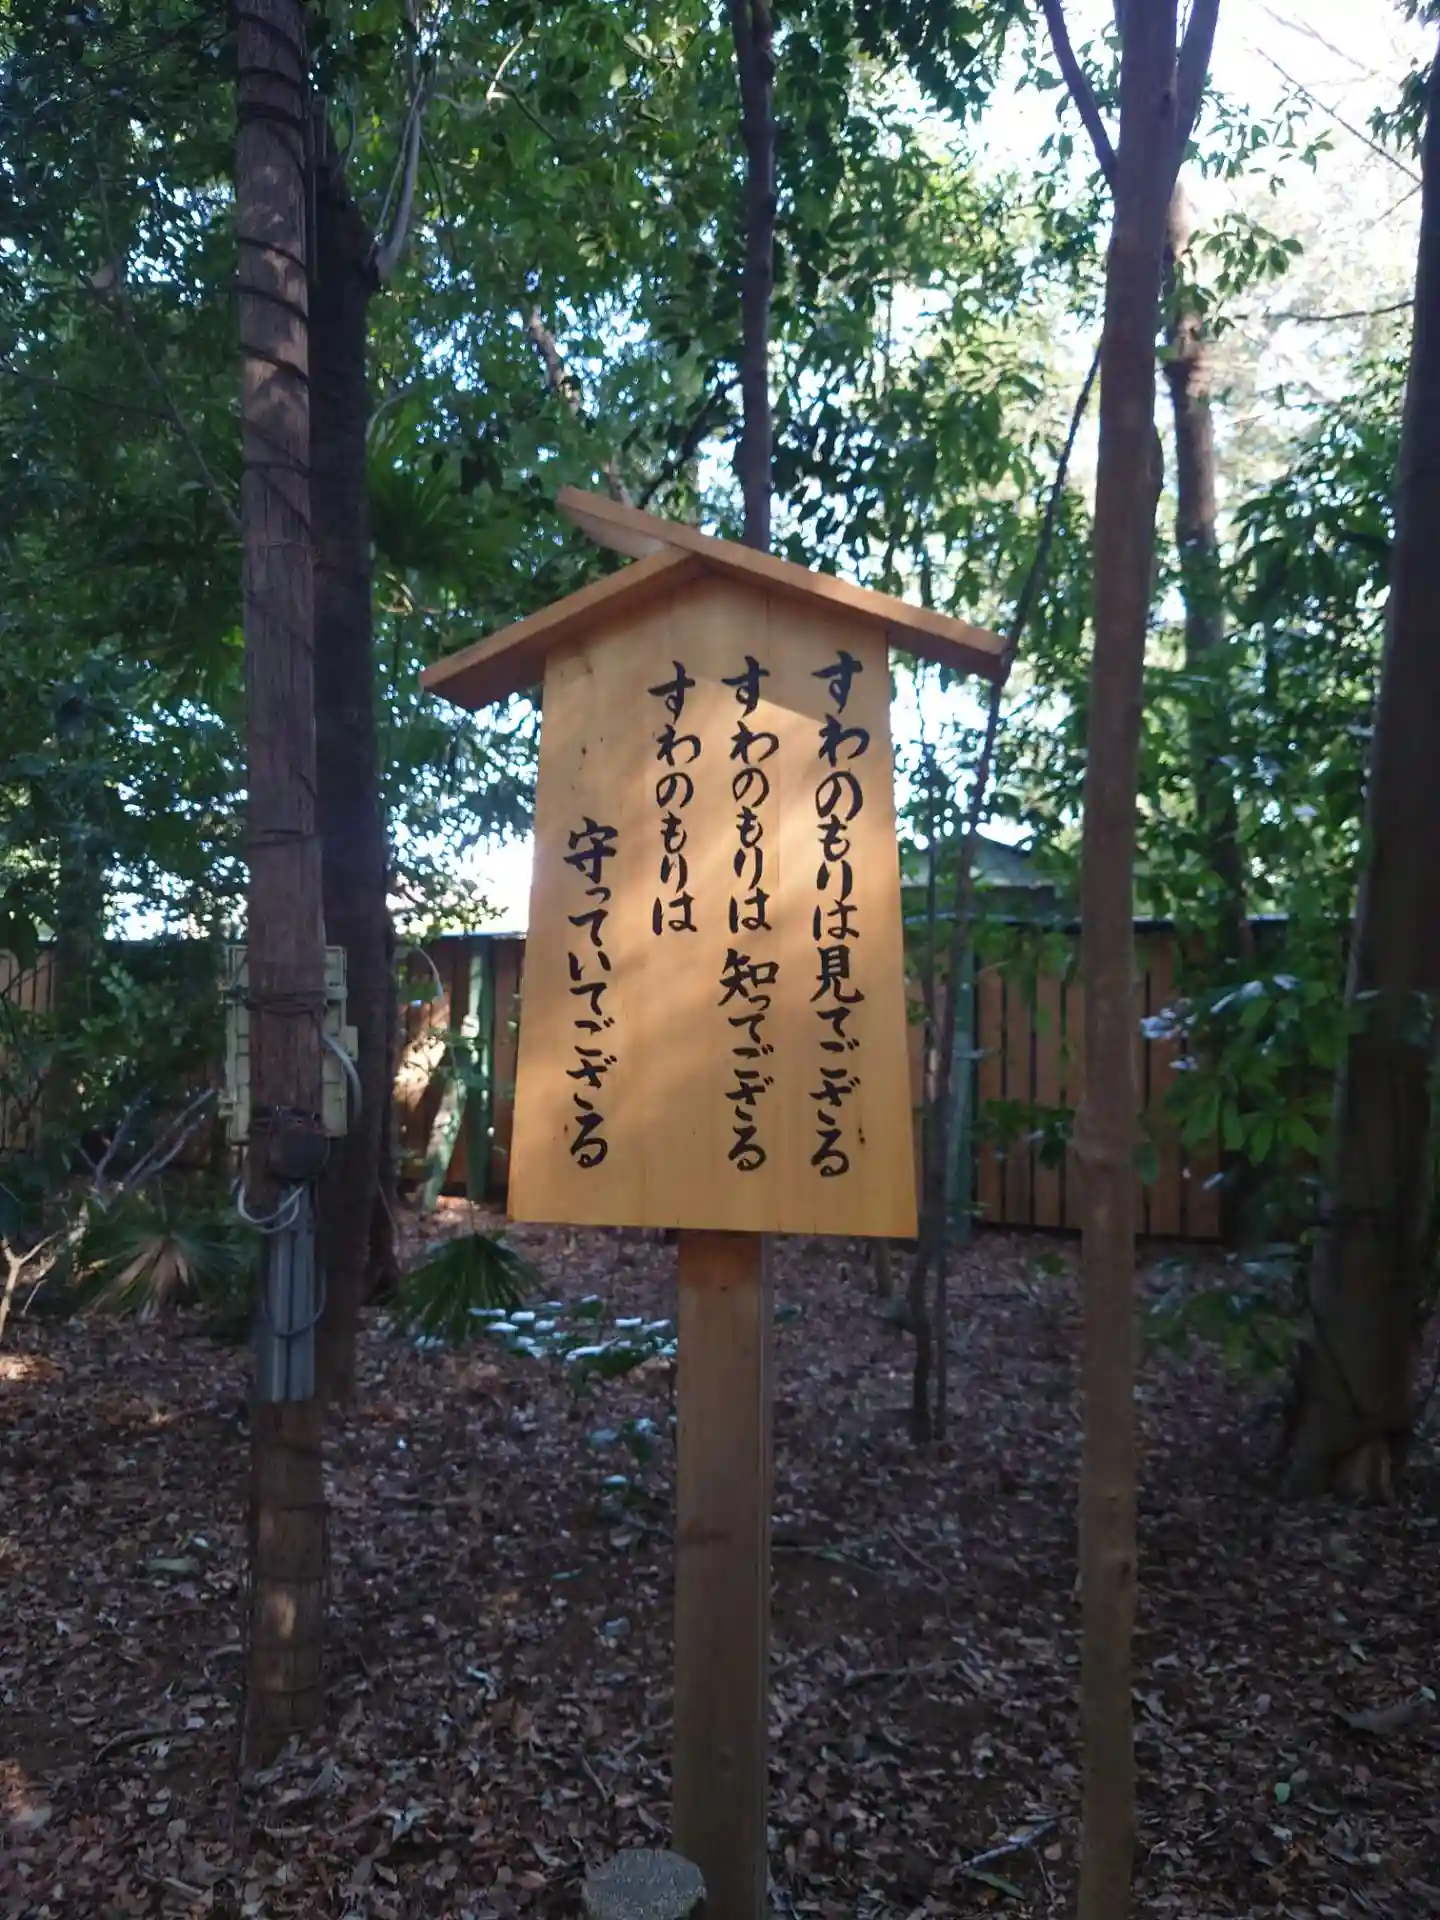 すわのもりは見てござる
すわのもりは 知ってござる
すわのもりは
守っていてござる